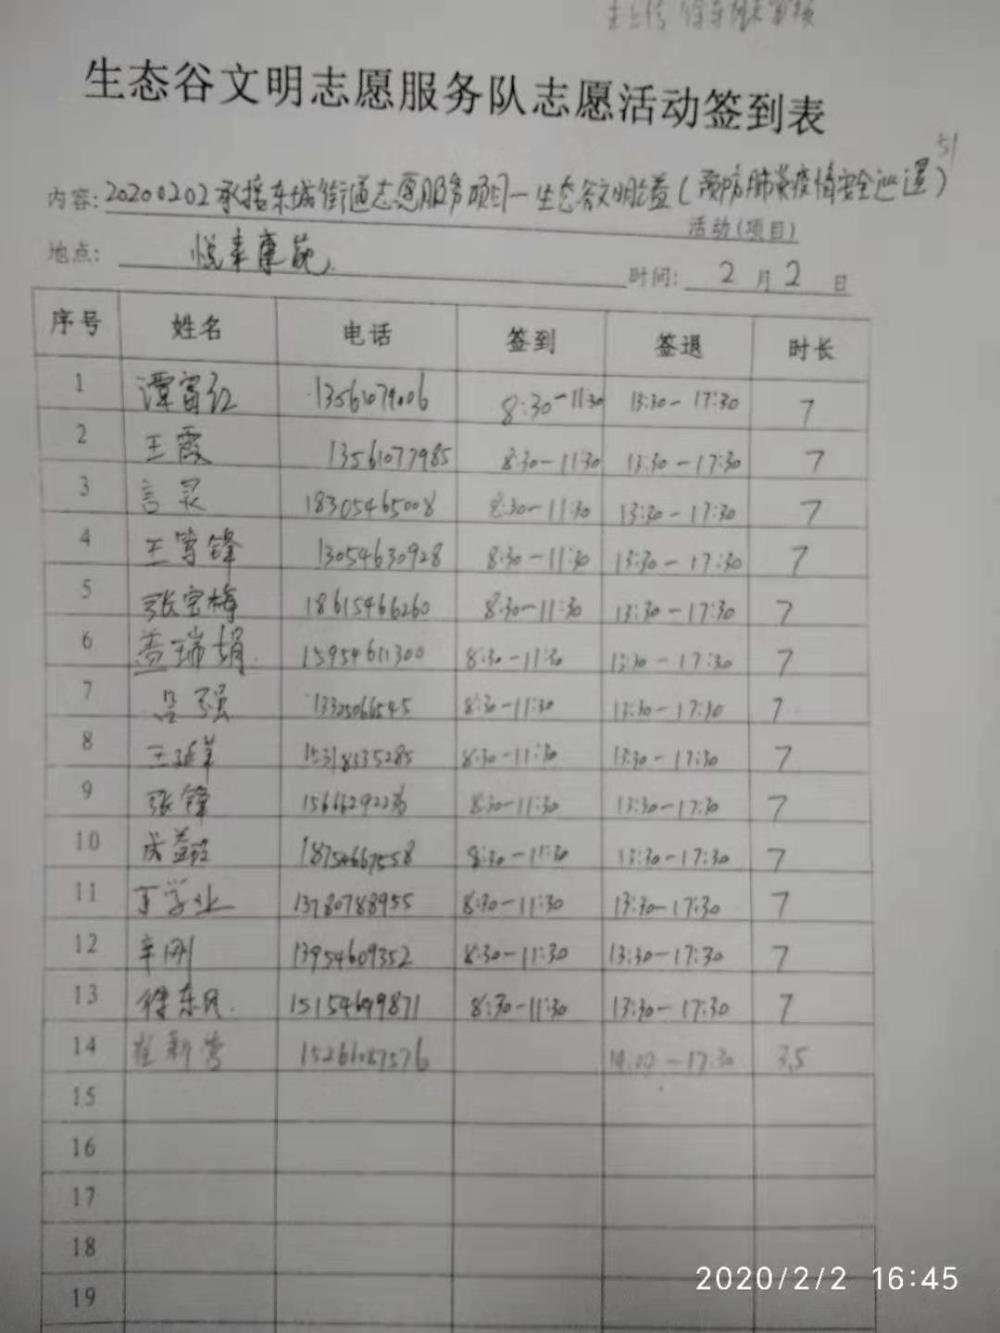 生态谷文明志愿服务队志愿活动签到表
51
内容: 20200202承接东城街道志愿服务项目—生态谷文明(预防肺炎疫情安全巡逻)
活动(项目)
地点: 悦来康苑 时间: 2月2日
序号 姓名 电话 签到 签退 时长
1 谭富红 13561079006 8:30-11:30 13:30-17:30 7
2 王霞 13561077985 8:30-11:30 13:30-17:30 7
3 言灵 18305465008 8:30-11:30 13:30-17:30 7
4 王 锋 13054630928 8:30-11:30 13:30-17:30 7
5 张宝梅 18615466260 8:30-11:30 13:30-17:30 7
6 盖瑞娟 15954611300 8:30-11:30 13:30-17:30 7
7 吕强 8:30-11:30 13:30-17:30 7
8 王延革 8:30-11:30 13:30-17:30 7
9 张锋 8:30-11:30 13:30-17:30 7
10 18754667558 8:30-11:30 13:30-17:30 7
11 丁学业 13780788955 8:30-11:30 13:30-17:30 7
12 辛刚 13954609352 8:30-11:30 13:30-17:30 7
13 徐东民 15154699871 8:30-11:30 13:30-17:30 7
14 崔新营 15261087576 14:00-17:30 3.5
15
16
17
18
19
2020/2/2 16:45